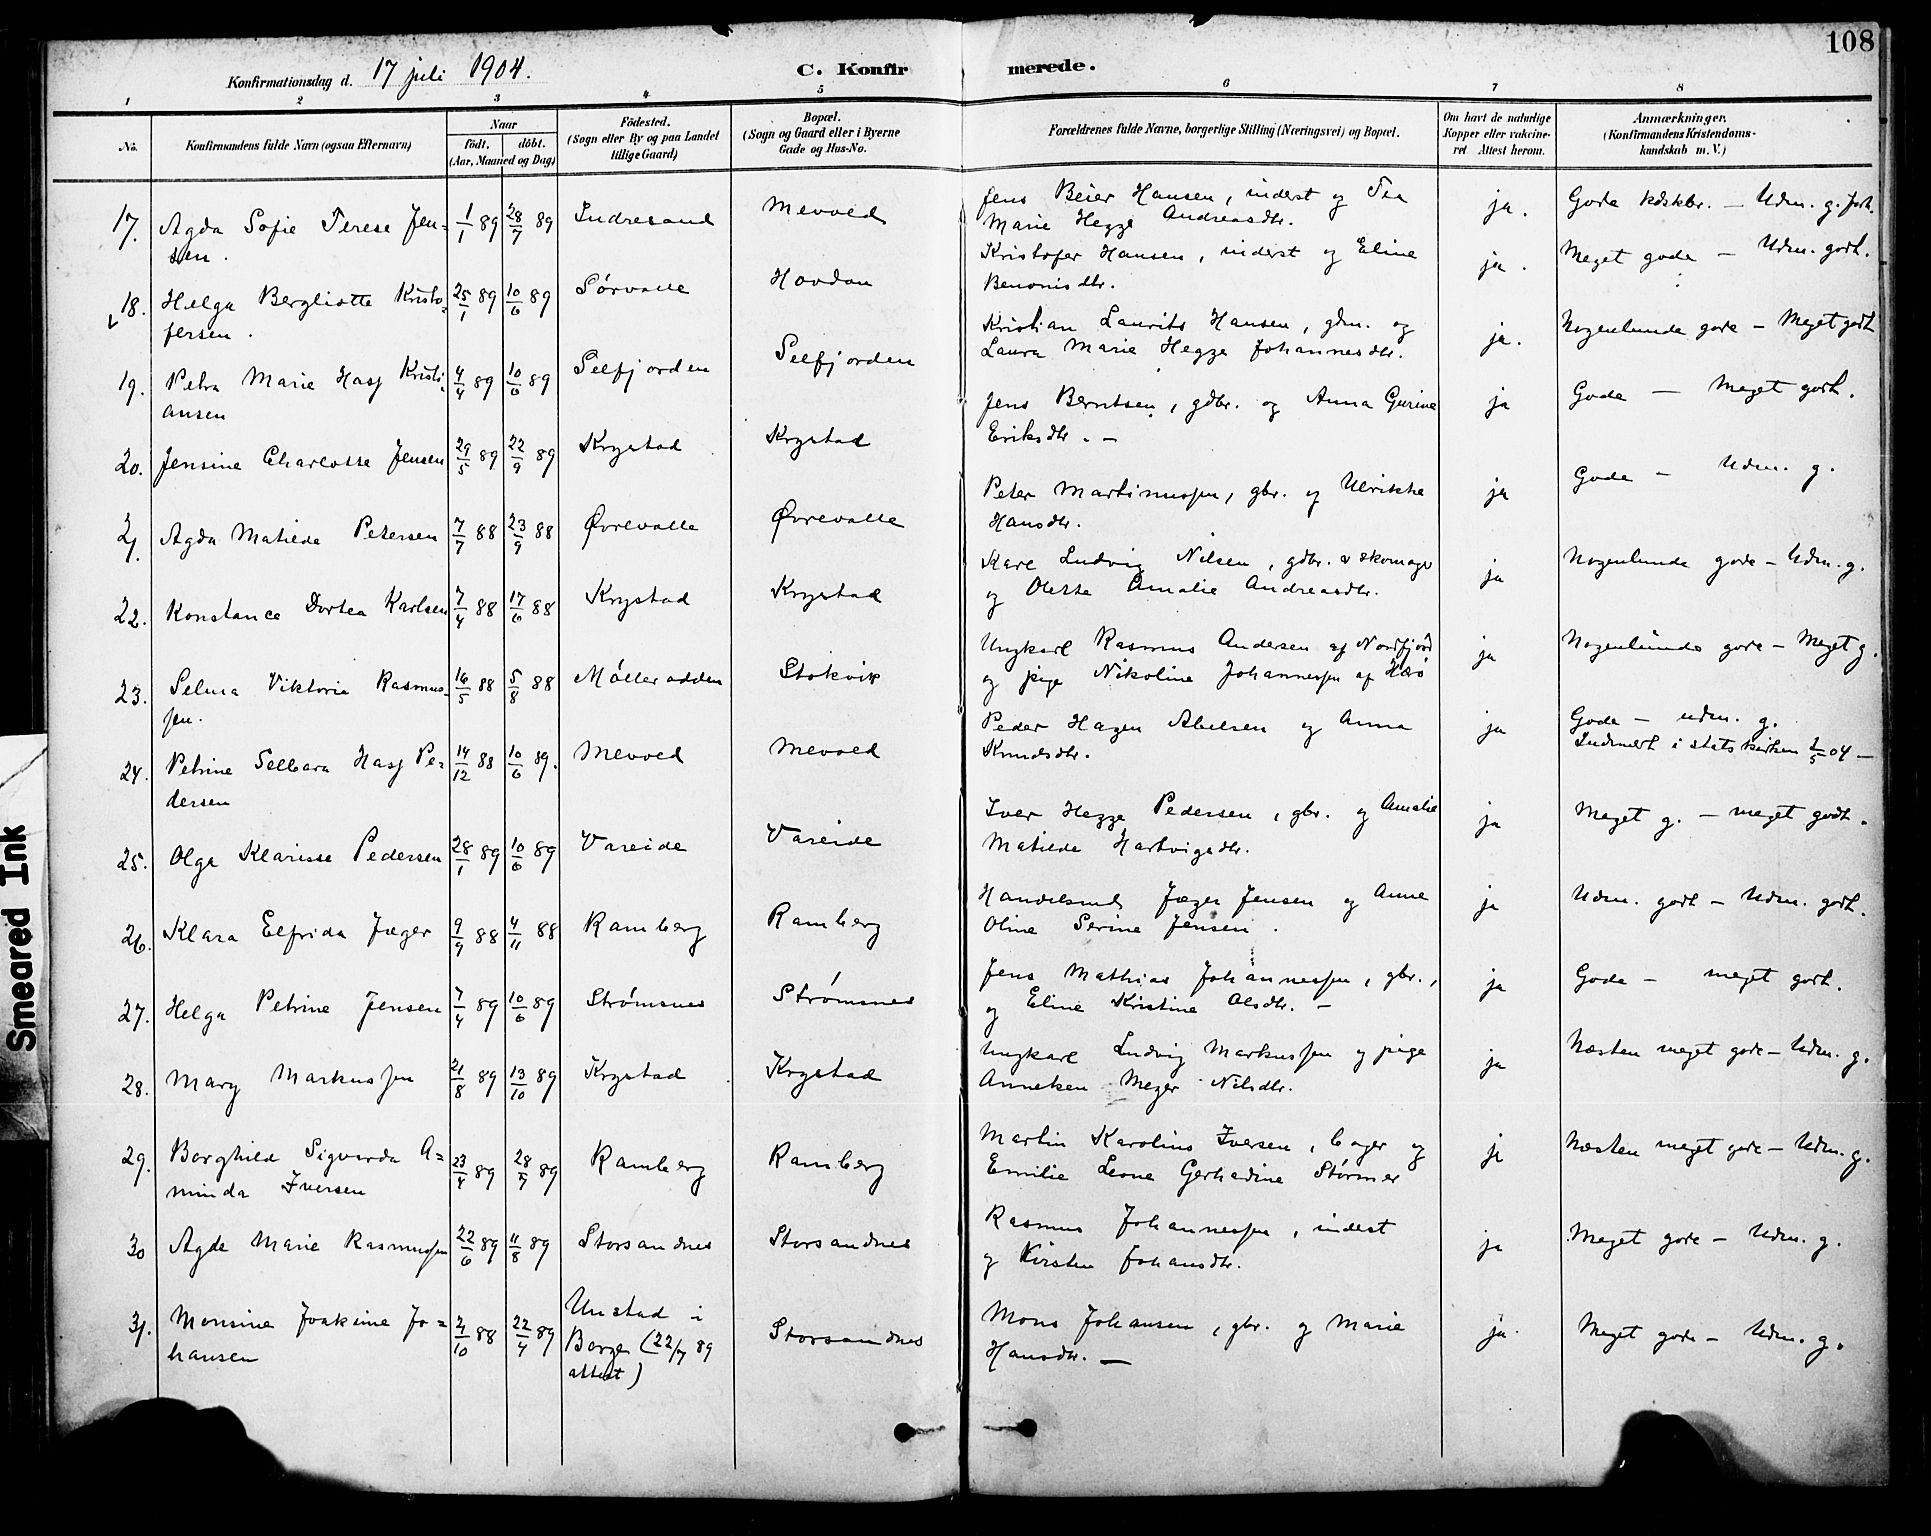 108
Konfirmationsdag d. 17 juli 1904.
C. Konfirmerede.
1 2 3 4 5 6 7 8
No. Konfirmandens fulde Navn (ogsaa Efternavn) Naar født. døbt. (Aar, Maaned og Dag) Fødested. (Sogn eller By og paa Landet tillige Gaard) Bopæl. (Sogn og Gaard eller i Byerne Gade og Hus-No. Forældrenes fulde Navne, borgerlige Stilling (Næringsvei) og Bopæl. Om havt de naturlige Kopper eller vakcineret Attest herom. Anmærkninger. (Konfirmandens Kristendomskundskab m. V.)
17. Agda Sofie Terese Jen= 1/1 89 28/7 89 Indresand Mevold Jens Beier Hansen, inderst og Tea ja. Gode kdskbr. - Udm. g. forh.
sen. Marie Hegge Andreasdtr.
18. Helga Bergliotte Kristo= 25/1 89 10/6 89 Sørvalle Hovdan Kristofer Hansen, inderst og Eline ja. Meget gode - Udm. godt.
fersen. Benonisdtr.
19. Petra Marie Hasj Kristi= 4/4 89 10/6 89 Selfjorden Selfjorden Kristian Laurits Hansen, gdm. og ja. Nogenlunde gode - Meget godt
ansen Laura Marie Hegge Johannesdtr.
20. Jensine Charlotte Jensen 29/5 89 22/9 89 Krystad Krystad Jens Berntsen, gdbr. og Anna Gurine ja Gode - Meget godt.
Eriksdtr. -
21. Agda Matilda Petersen 7/7 88 23/9 88 Øvrevalle Øvrevalle Peter Martinussen, gbr. og Ulrikke ja Gode - Udm. g.
Hansdtr.
22. Konstance Dortea Karlsen 7/4 88 17/6 88 Krystad Krystad Karl Ludvig Nilsen, gdbr. & skomager ja Nogenlunde gode - Udm. g.
og Oletta Amalie Andreasdtr.
23. Selma Viktoria Rasmus= 16/5 88 5/8 88 Mølleradden Stokvik Ungkarl Rasmus Andersen af Nordfjord ja Nogenlunde gode - Meget g.
sen. og pige Nikoline Johannessen af Herø
24. Petrine Selbara Hasj Pe= 14/12 88 10/6 89. Mevold Mevold Peder Hagen Abelsen og Anna ja Gode - udm. g.
dersen Knudsdtr. Indmeldt i statskirken 2/5 04 -
25. Olga Klarisse Pedersen 28/1 89 10/6 89 Vareide Vareide Iver Hegge Pedersen, gbr. og Amalie ja Meget g. - meget godt.
Matilda Hartvigsdtr.
26. Klara Elfrida Jæger 9/9 88 4/11 88 Ramberg Ramberg Handelsmd. Jæger Jensen og Anne ja Udm. godt - Udm. godt.
Oline Serine Jensen.
27. Helga Petrine Jensen 7/4 89 10/6 89 Strømsnes Strømsnes Jens Mathias Johannessen, gbr., ja Gode - meget godt.
og Eline Kristine Olsdtr. -
28. Mary Markussen 21/8 89 13/10 89 Krystad Krystad Ungkarl Ludvig Markussen og pige ja Næsten meget gode - Udm. g.
Anneken Meyer Nilsdtr.
29. Borghild Sigvarda A= 23/4 89 28/7 89 Ramberg Ramberg Martin Karolius Iversen, bager og ja Næsten meget gode - Udm. g.
minda Iversen Emilie Leone Gerhadine Størmer
30 Agda Marie Rasmussen 22/6 89 11/8 89 Storsandnes Storsandnes Rasmus Johannessen, inderst ja Meget gode - Udm. g.
og Kirsten Johansdtr.
31. Monsine Joakime Jo= 2/10 88 22/4 89 Unstad i Storsandnes Mons Johansen, gbr. og Marie ja. Meget gode - Udm. g.
hansen Borge (22/7 89 Hansdtr. -
attest)
Smeared Ink